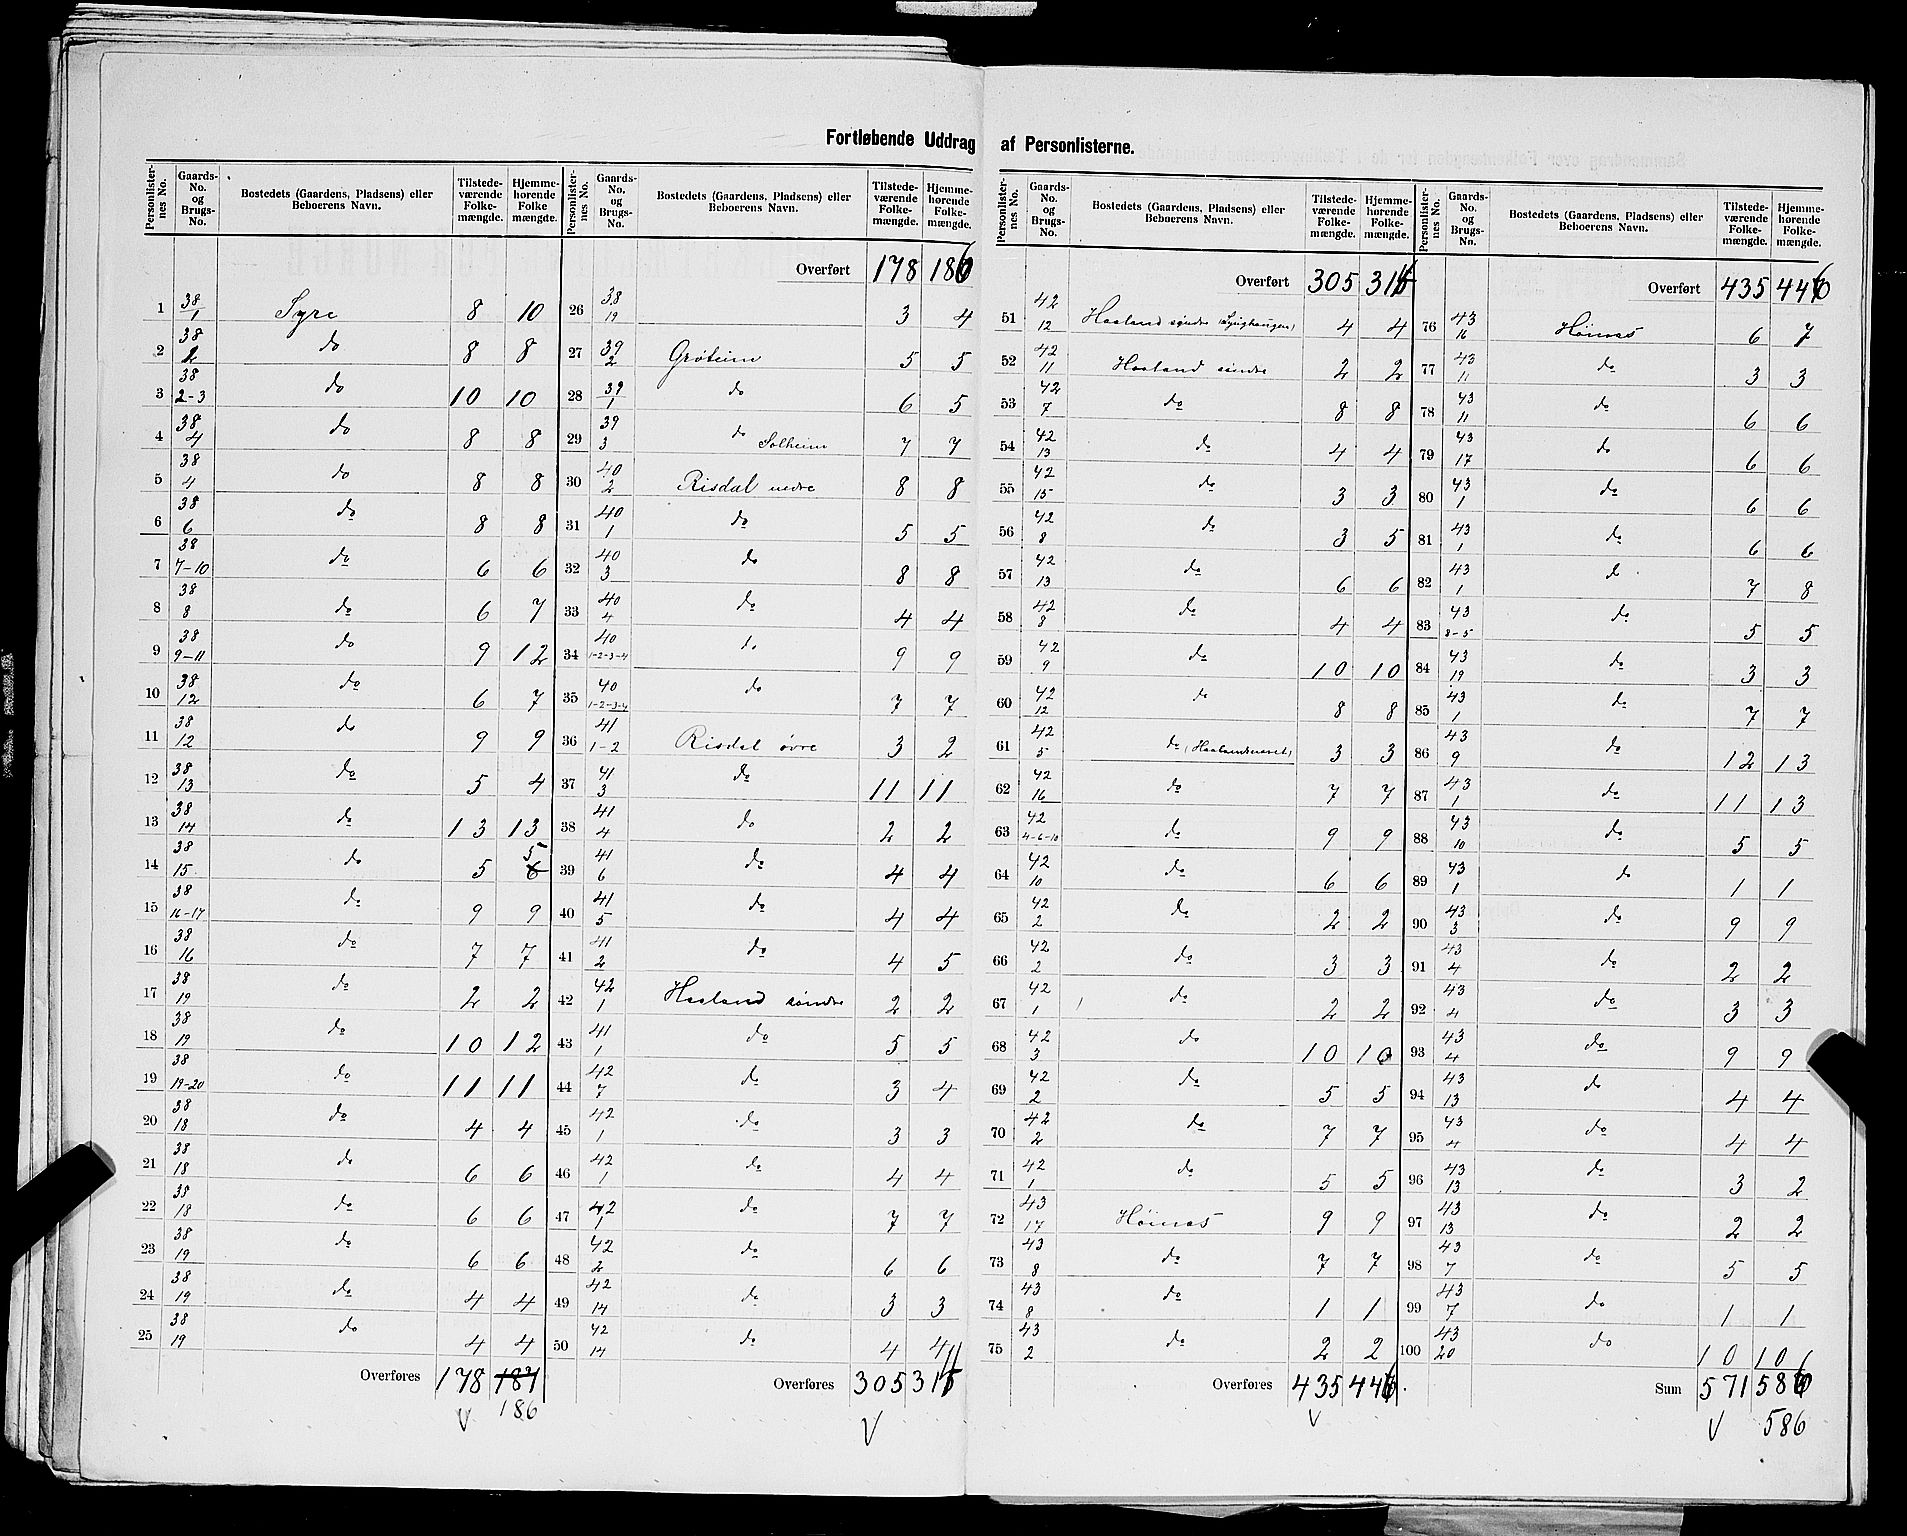 Fortløbende Uddrag af Personlisterne.
Personlister-nes No. | Gaards-No. og Brugs-No. | Bostedets (Gaardens, Pladsens) eller Beboerens Navn. | Tilstede-værende Folke-mængde. | Hjemme-hørende Folke mængde.
1 | 38/1 | Syre | 8 | 10
2 | 38/2 | do | 8 | 8
3 | 38/2-3 | do | 10 | 10
4 | 38/4 | do | 8 | 8
5 | 38/4 | do | 8 | 8
6 | 38/6 | do | 8 | 8
7 | 38/7-10 | do | 6 | 6
8 | 38/8 | do | 6 | 7
9 | 38/9-11 | do | 9 | 12
10 | 38/12 | do | 6 | 7
11 | 38/12 | do | 9 | 9
12 | 38/13 | do | 5 | 4
13 | 38/14 | do | 13 | 13
14 | 38/15 | do | 5 | 6 5
15 | 38/16-17 | do | 9 | 9
16 | 38/16 | do | 7 | 7
17 | 38/19 | do | 2 | 2
18 | 38/19 | do | 10 | 12
19 | 38/19-20 | do | 11 | 11
20 | 38/18 | do | 4 | 4
21 | 38/18 | do | 6 | 6
22 | 38/18 | do | 6 | 6
23 | 38/19 | do | 6 | 6
24 | 38/19 | do | 4 | 4
25 | 38/19 | do | 4 | 4
Overføres 178 187
V 186
Personlister-nes No. | Gaards-No. og Brugs-No. | Bostedets (Gaardens, Pladsens) eller Beboerens Navn. | Tilstede-værende Folke-mængde. | Hjemme-hørende Folke-mængde.
Overført 178 186
26 | 38/19 | | 3 | 4
27 | 39/2 | Grøteim | 5 | 5
28 | 39/1 | do | 6 | 5
29 | 39/3 | do Solheim | 7 | 7
30 | 40/2 | Risdal nedre | 8 | 8
31 | 40/1 | do | 5 | 5
32 | 40/3 | do | 8 | 8
33 | 40/4 | do | 4 | 4
34 | 40/1-2-3-4 | do | 9 | 9
35 | 40/1-2-3-4 | do | 7 | 7
36 | 41/1-2 | Risdal øvre | 3 | 2
37 | 41/3 | do | 11 | 11
38 | 41/4 | do | 2 | 2
39 | 41/6 | do | 4 | 4
40 | 41/5 | do | 4 | 4
41 | 41/2 | do | 4 | 5
42 | 42/1 | Haaland søndre | 2 | 2
43 | 41/1 | do | 5 | 5
44 | 42/7 | do | 3 | 4
45 | 42/1 | do | 3 | 3
46 | 42/1 | do | 4 | 4
47 | 42/1 | do | 7 | 7
48 | 42/2 | do | 6 | 6
49 | 42/14 | do | 3 | 3
50 | 42/14 | do | 4 | 4
Overføres 305
V
Personlister-nes No. | Gaards-No. og Brugs-No. | Bostedets (Gaardens, Pladsens) eller Beboerens Navn. | Tilstede-værende Folke-mængde. | Hjemme-hørende Folke-mængde.
Overført 305
51 | 42/12 | Haaland søndre (Lynghaugen) | 4 | 4
52 | 42/11 | Haaland søndre | 2 | 2
53 | 42/7 | do | 8 | 8
54 | 42/13 | do | 4 | 4
55 | 42/15 | do | 3 | 3
56 | 42/8 | do | 3 | 5
57 | 42/13 | do | 6 | 6
58 | 42/8 | do | 4 | 4
59 | 42/9 | do | 10 | 10
60 | 42/12 | do | 8 | 8
61 | 42/5 | do (Haalandsneset) | 3 | 3
62 | 42/16 | do | 7 | 7
63 | 42/4-6-10 | do | 9 | 9
64 | 42/10 | do | 6 | 6
65 | 42/2 | do | 2 | 2
66 | 42/2 | do | 3 | 3
67 | 42/1 | do | 2 | 2
68 | 42/3 | do | 10 | 10
69 | 42/2 | do | 5 | 5
70 | 42/2 | do | 7 | 7
71 | 42/1 | do | 5 | 5
72 | 43/17 | Høines | 9 | 9
73 | 43/8 | do | 7 | 7
74 | 43/8 | do | 1 | 1
75 | 43/2 | do | 2 | 2
Overføres 435 446
V
Personlister-nes No. | Gaards-No. og Brugs-No. | Bostedets (Gaardens, Pladsens) eller Beboerens Navn. | Tilstede-værende Folke-mængde. | Hjemme-hørende Folke-mængde.
Overført 435 446
76 | 43/16 | Høines | 6 | 7
77 | 43/11 | do | 3 | 3
78 | 43/11 | do | 6 | 6
79 | 43/17 | do | 6 | 6
80 | 43/1 | do | 6 | 6
81 | 43/1 | do | 6 | 6
82 | 43/1 | do | 7 | 8
83 | 43/8-5 | do | 5 | 5
84 | 43/19 | do | 3 | 3
85 | 43/1 | do | 7 | 7
86 | 43/9 | do | 12 | 13
87 | 43/1 | do | 11 | 13
88 | 43/10 | do | 5 | 5
89 | 43/1 | do | 1 | 1
90 | 43/3 | do | 9 | 9
91 | 43/4 | do | 2 | 2
92 | 43/4 | do | 3 | 3
93 | 43/4 | do | 9 | 9
94 | 43/13 | do | 4 | 4
95 | 43/4 | do | 4 | 4
96 | 43/13 | do | 3 | 2
97 | 43/13 | do | 2 | 2
98 | 43/7 | do | 5 | 5
99 | 43/7 | do | 1 | 1
100 | 43/20 | do | 10 | 10
Sum 571 586
V 586